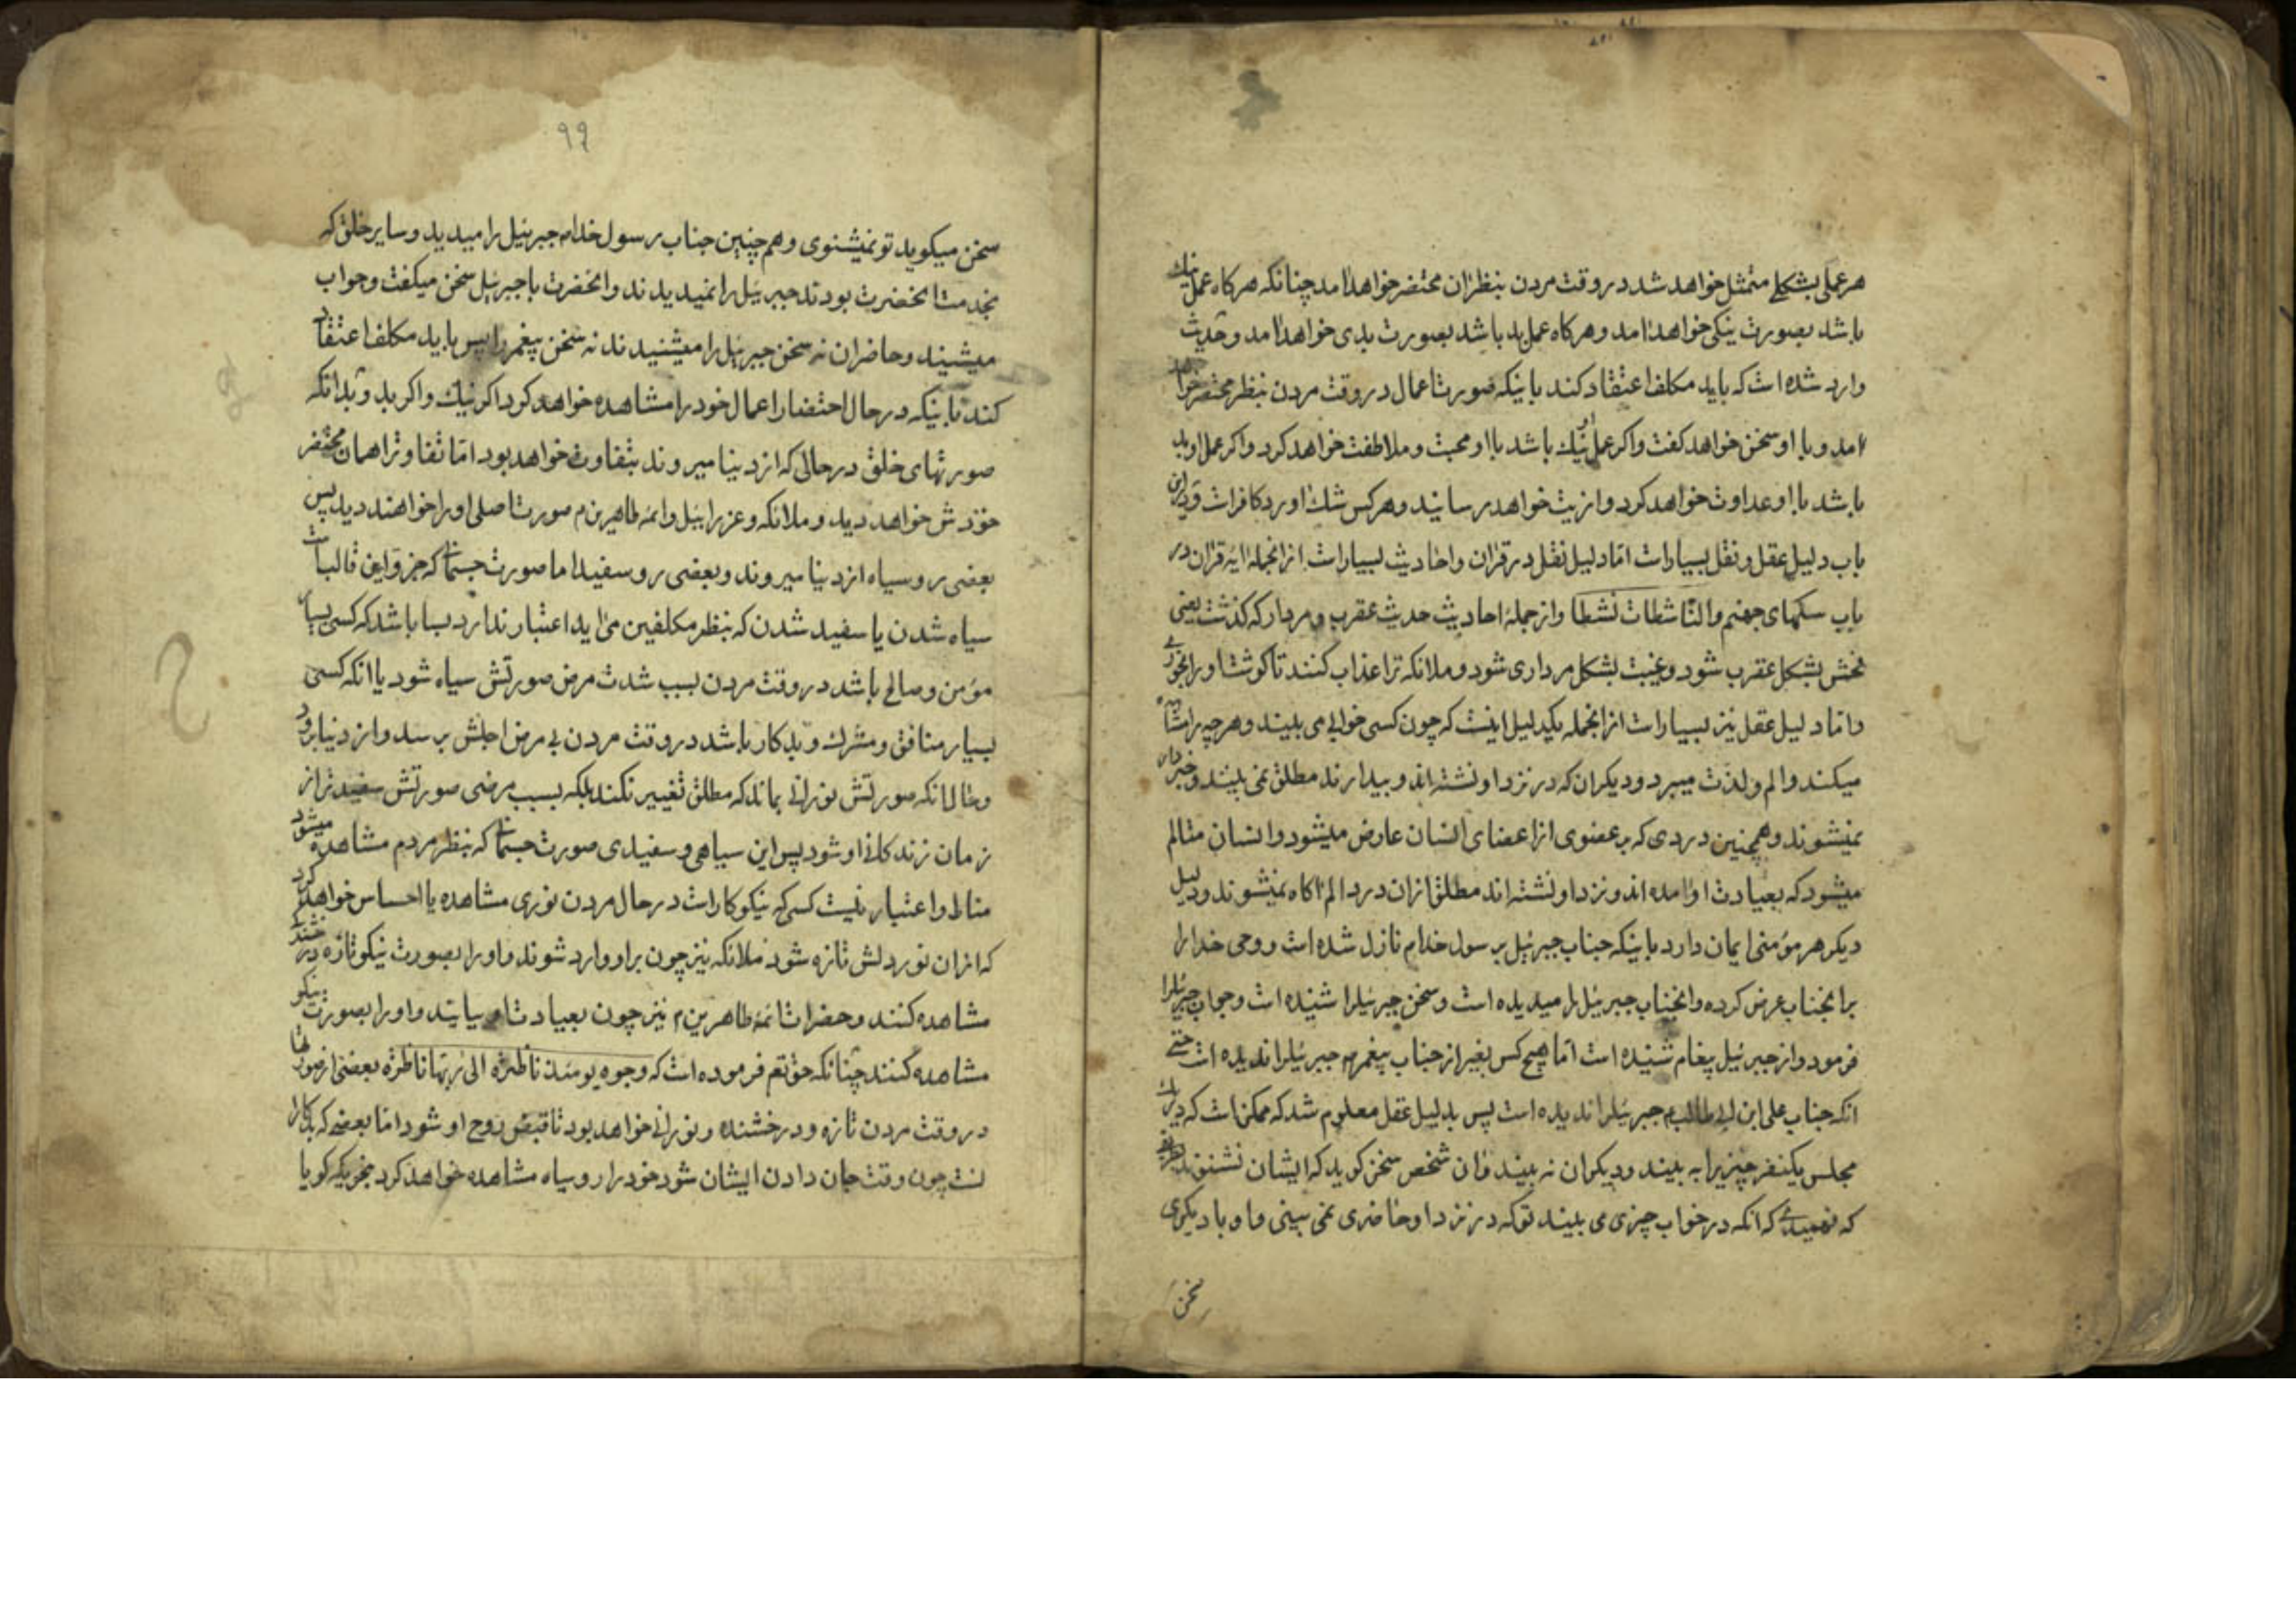 هر عملی بشکلی متمثل خواهد شد در وقت مردن بنظر ان محتضر خواهد امد چنانکه هرکاه عمل نیك
باشد بصورت نیکی خواهد امد و هرکاه عمل بد باشد بصورت بدی خواهد امد و حدیث
وارد شده است که باید مکلف اعتقاد کند باینکه صورت اعمال در وقت مردن بنظر محتضر خواهد
امد و با او سخن خواهد کفت و اکر عمل او نیك باشد با او محبت و ملاطفت خواهد کرد و اکر عمل او بد
باشد با او عداوت خواهد کرد و ازیت خواهد رسانید و هرکس شك اورد کافر است و در این
باب دلیل عقل و نقل بسیار است اما دلیل نقل در قران و احادیث بسیار است ازانجمله ایه قران در
باب سکهای جهنم والناشطات نشطا و از جمله احادیث حدیث عقرب و مردار که کذشت یعنی
فحش بشکل عقرب شود و غیبت بشکل مرداری شود و ملائکه ترا عذاب کنند تا کوشت او را بخوری
و اما دلیل عقل نیز بسیار است ازانجمله یکدلیل اینست که چون کسی خوابی می بیند و هرچیه را مشاهده
میکند و الم و لذت میبرد و دیکران که در نزد او نشسته اند و بیدارند مطلق نمی بینند و خبردار
نمیشوند و همچنین دردی که بر عضوی از اعضای انسان عارض میشود و انسان متالم
میشود که بعیادت او امده اند و نزد او نشسته اند مطلق ازان درد الم اکاه نمیشوند و دلیل
دیکر هر مؤمنی ایمان دارد باینکه جناب جبرئیل بر رسول خدا م نازل شده است و وحی خدا را
بر انجناب عرض کرده و انجناب جبرئیل را میدیده است و سخن جبرئیلرا شنیده است و جواب جبرئیلرا
فرمود و از جبرئیل پیغام شنیده است اما هیچ کس بغیر از جناب پیغمر م جبرئیلرا ندیده است حتی
انکه جناب علی ابن ابی طالب م جبرئیلرا ندیده است پس بدلیل عقل معلوم شد که ممکن است که در یك
مجلس یکنفر چیزیرا به بیند و دیکران نه بیند و ان شخص سخن کوید که ایشان نشنوند
که نفهمیدی که انکه در خواب چیزی می بیند توکه در نزد او حاضری نمی بینی و او با دیکری
سخن
۹۹
سخن میکوید تو نمیشنوی و هم چنین جناب رسول خدا م جبرئیل را میدید و سایر خلق که
بخدمت انحضرت بودند جبرئیل را نمیدیدند و انحضرت با جبرئیل سخن میکفت و جواب
میشیند و حاضران نه سخن جبرئیل را میشنیدند نه سخن پیغمر را پس باید مکلف اعتقاد
کند باینکه در حال احتضار اعمال خود را مشاهده خواهد کرد اکر نیك و اکر بد و بدانکه
صورتهای خلق در حالی که از دینا میروند بتفاوت خواهد بود اما تفاوتراهمان محتضر
خودش خواهد دید و ملائکه و عزرائیل و ائمه طاهرین م صورت اصلی او را خواهند دید پس
بعضی روسیاه از دینا میروند و بعضی روسفید اما صورت جسمانی که جزو این قالب است
سیاه شدن یا سفید شدن که بنظر مکلفین می اید اعتبار ندارد بسا باشد که کسی بسیار
مؤمن و صالح باشد در وقت مردن بسبب شدت مرض صورتش سیاه شود یا انکه کسی
بسیار منافق و مشرك و بدکار باشد در وقت مردن بی مرض اجلش برسد و از دینا برود
و حال انکه صورتش نورانی بماند که مطلق تغییر نکند بلکه بسبب مرضی صورتش سفید تر از
زمان زندکانی او شود پس این سیاهی و سفیدی صورت جسمانی که بنظر مردم مشاهده میشود
مناط و اعتبار نیست کسی که نیکوکار است در حال مردن نوری مشاهده یا احساس خواهد کرد
که ازان نور دلش تازه شود ملائکه نیز چون بر او وارد شوند او را بصورت نیکو تازه درخشنده
مشاهده کنند و حضرات ائمه طاهرین م نیز چون بعیادت او بیایند و او را بصورت نیکو
مشاهده کنند چنانکه حقتعم فرموده است که وجوه یومئذ ناظرة الی ربها ناظرة بعضی از صورتها
در وقت مردن تازه و درخشنده و نورانی خواهد بود تا قبض روح او شود اما بعضی که بدکارا
نست چون وقت جان دادن ایشان شود خود را روسیاه مشاهده خواهد کرد بنحویکه کویا